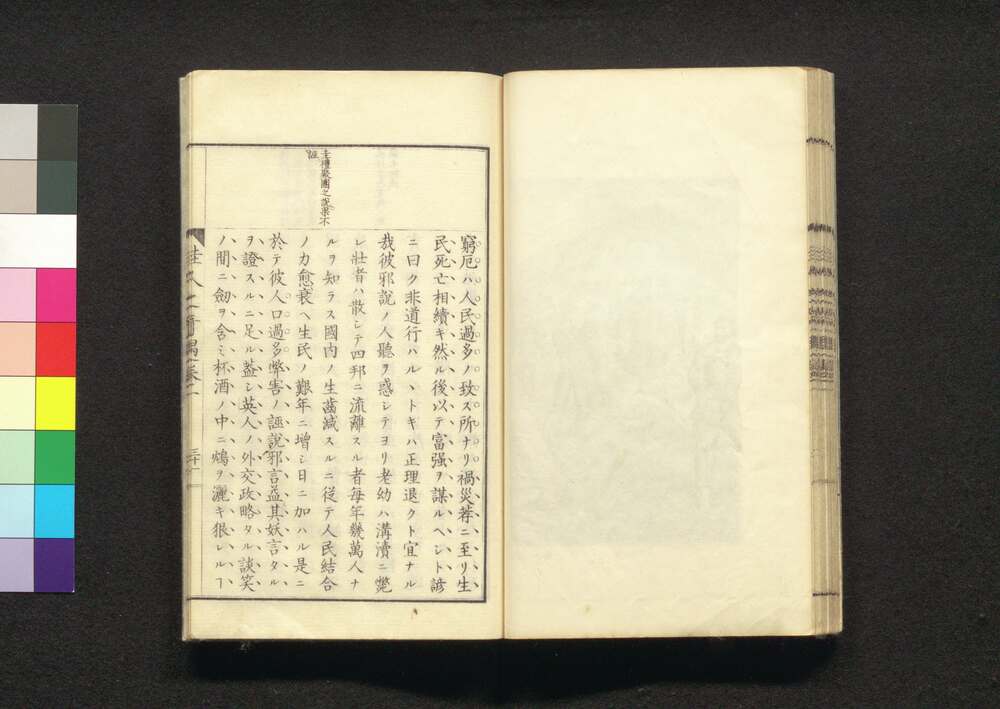 土壇聚團之説果不
誣
窮厄ハ人民過多ノ致ス所ナリ禍災荐ニ至リ生
民死亡相續キ然ル後以テ富强ヲ謀ルヘシト諺
ニ曰ク非道行ハルヽトキハ正理退クト宜ナル
哉彼邪説ノ人聽ヲ惑シテヨリ老幼ハ溝瀆ニ斃
レ壯者ハ散シテ四邦ニ流離スル者每年幾萬人ナ
ルヲ知ラス國内ノ生齒減スルニ從テ人民結合
ノ力愈衰ヘ生民ノ艱年ニ增シ日ニ加ハル是ニ
於テ彼人口過多弊害ノ誣說邪言益其妖言タル
ヲ證スルニ足ル蓋シ英人ノ外交政略タル談笑
ノ間ニ劒ヲ含ミ杯酒ノ中ニ鴆ヲ灑キ狠シルヿ
佳人之奇遇卷二
三十一